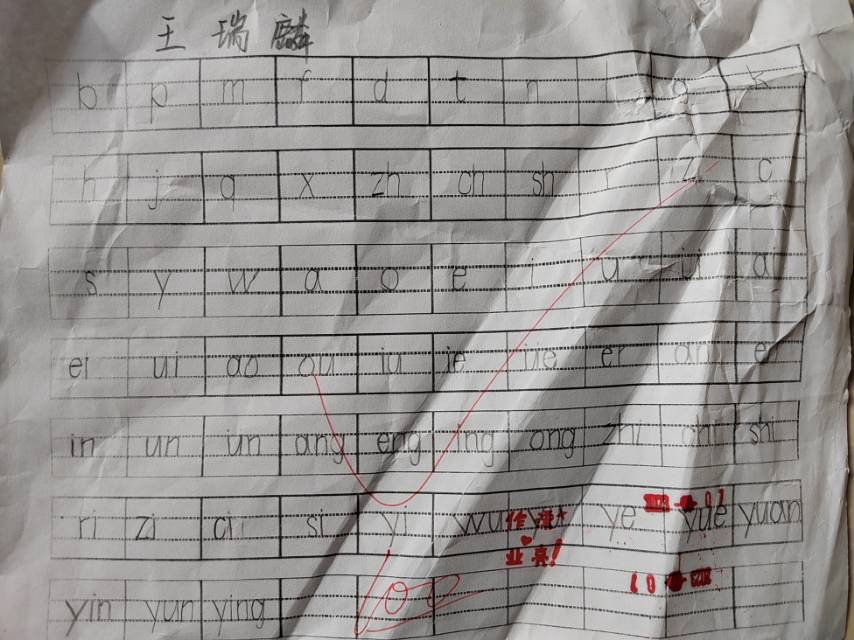 王瑞麟
b p m f d t n l g k
h j q x zh ch sh r z c
s y w a o e i u ü ai
ei ui ao ou iu ie üe er an en
in un ün ang eng ing ong zhi chi shi
ri zi ci si yi wu yu ye yue yuan
作业漂亮!
yin yun ying
100